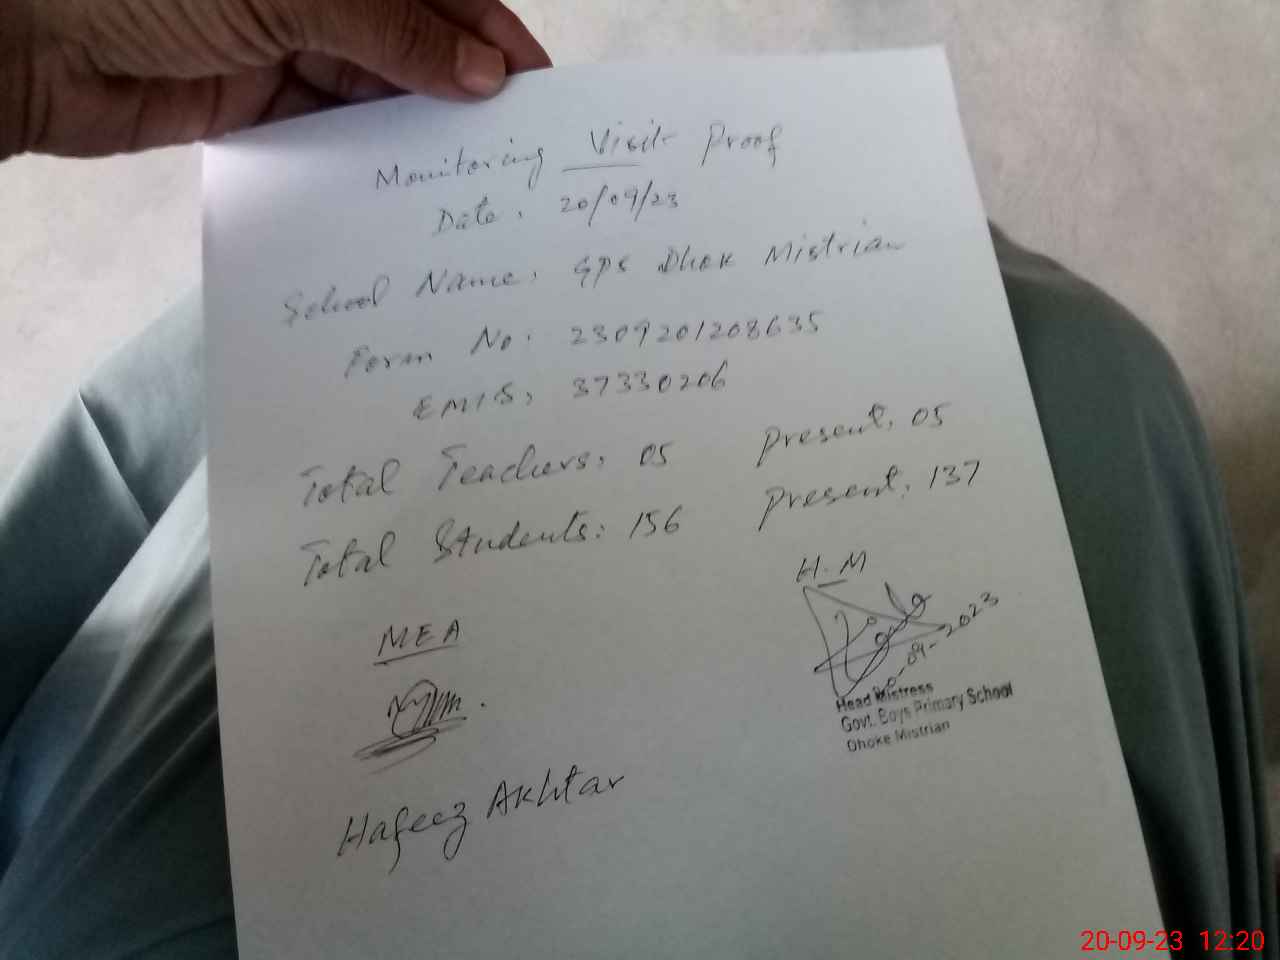 Monitoring Visit Proof
Date: 20/09/23
School Name: GPS Dhok Mistrian
Form No: 2309201208635
EMIS: 37330206
Total Teachers: 05 Present: 05
Total Students: 156 Present: 137
MEA
H.M
20-09-2023
Head Mistress
Govt. Boys Primary School
Dhoke Mistrian
Hafeez Akhtar
20-09-23 12:20